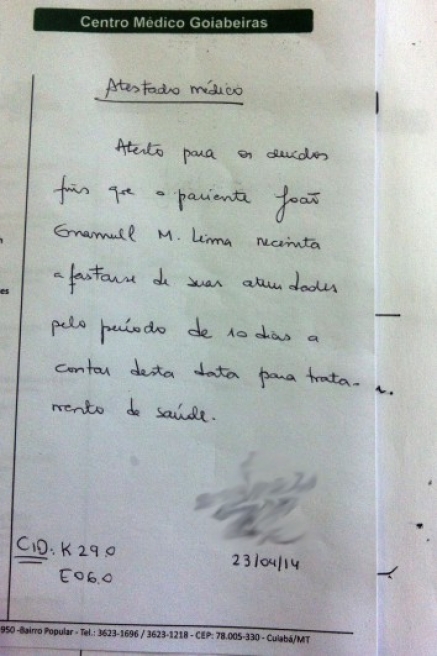 Centro Médico Goiabeiras
Atestado médico
Atesto para os devidos
fins que o paciente João
Emanuell M. Lima necessita
afastarse de suas atividades
pelo período de 10 dias a
contar desta data para trata-
mento de saúde.
CID: K 29.0
E06.0
23/04/14
950 -Bairro Popular - Tel.: 3623-1696 / 3623-1218 - CEP: 78.005-330 - Cuiabá/MT